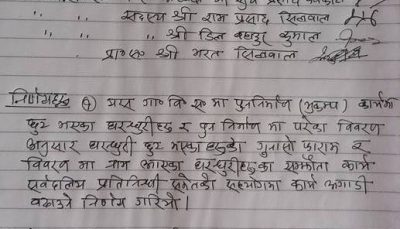 " " सदस्य श्री राम प्रसाद सिलवाल
" " " श्री डिल बहादुर कुमाल
" प्रा०स० श्री भरत सिलवाल
निर्णयहरु १) यस गा० वि० स० मा पुननिर्माण (भुकम्प) कार्यमा
छुट भएका घरधुरीहरु र पुन निर्माण मा परेका विवरण
अनुसार घरधुरी छुट भएका हरुको गुनासो फाराम र
विवरण मा नाम आएका घरधुरीहरुका सम्झौता कार्य
सर्वदलिय प्रतितिधी समेतको सहभागमा कार्य अगाडी
बढाउने निर्णय गरियो।